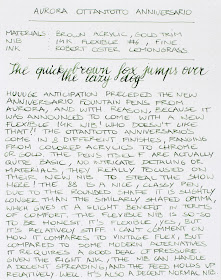 AURORA OTTANTOTTO ANNIVERSARIO
MATERIALS BROWN ACRYLIC, GOLD TRIM
NIB 14K FLEXIBLE #6, FINE
INK ROBERT OSTER LEMONGRASS
The quick brown fox jumps over
the lazy dog
HUUUGE ANTICIPATION PRECEDED THE NEW
ANNIVERSARIO FOUNTAIN PENS FROM
AURORA, AND WITH REASON, BECAUSE IT
WAS ANNOUNCED TO COME WITH A NEW
FLEXIBLE 14K NIB! WHO DOESN'T LIKE
THAT!! THE OTTANTOTTO ANNIVERSARIO'S
COME IN 5 DIFFERENT FINISHES, RANGING
FROM COLORED ACRYLICS TO CHROME
OR GOLD. THE PENS ITSELF ARE ACTUALLY
QUITE BASIC AND INTRICATE DETAILING OR
MATERIALS. THEY REALLY FOCUSED ON
THEIR NEW NIB TO STEAL THE SHOW
HERE! THE 88 IS A NICE, CLASSY PEN,
DUE TO THE ROUNDED SHAPE IT IS SLIGHTLY
LONGER THAN THE SIMILARLY SHAPED OPTIMA,
WHICH GIVES IT A SLIGHT BENEFIT IN TERMS
OF COMFORT. THE FLEXIBLE NIB IS SO-SO
TO BE HONEST. IT'S FLEXIBLE, YES, BUT
IT'S RELATIVELY STIFF. I CAN'T COMMENT ON
HOW IT COMPARES TO VINTAGE FLEX, BUT
COMPARED TO SOME MODERN ALTERNATIVES,
IT REQUIRES A GOOD DEAL OF PRESSURE.
GIVEN THE RIGHT INK, THE NIB CAN HANDLE
A DECENT SPREADING, AND THE FEED HOLDS UP
RELATIVELY WELL. IT'S ALSO A DECENT NORMAL NIB